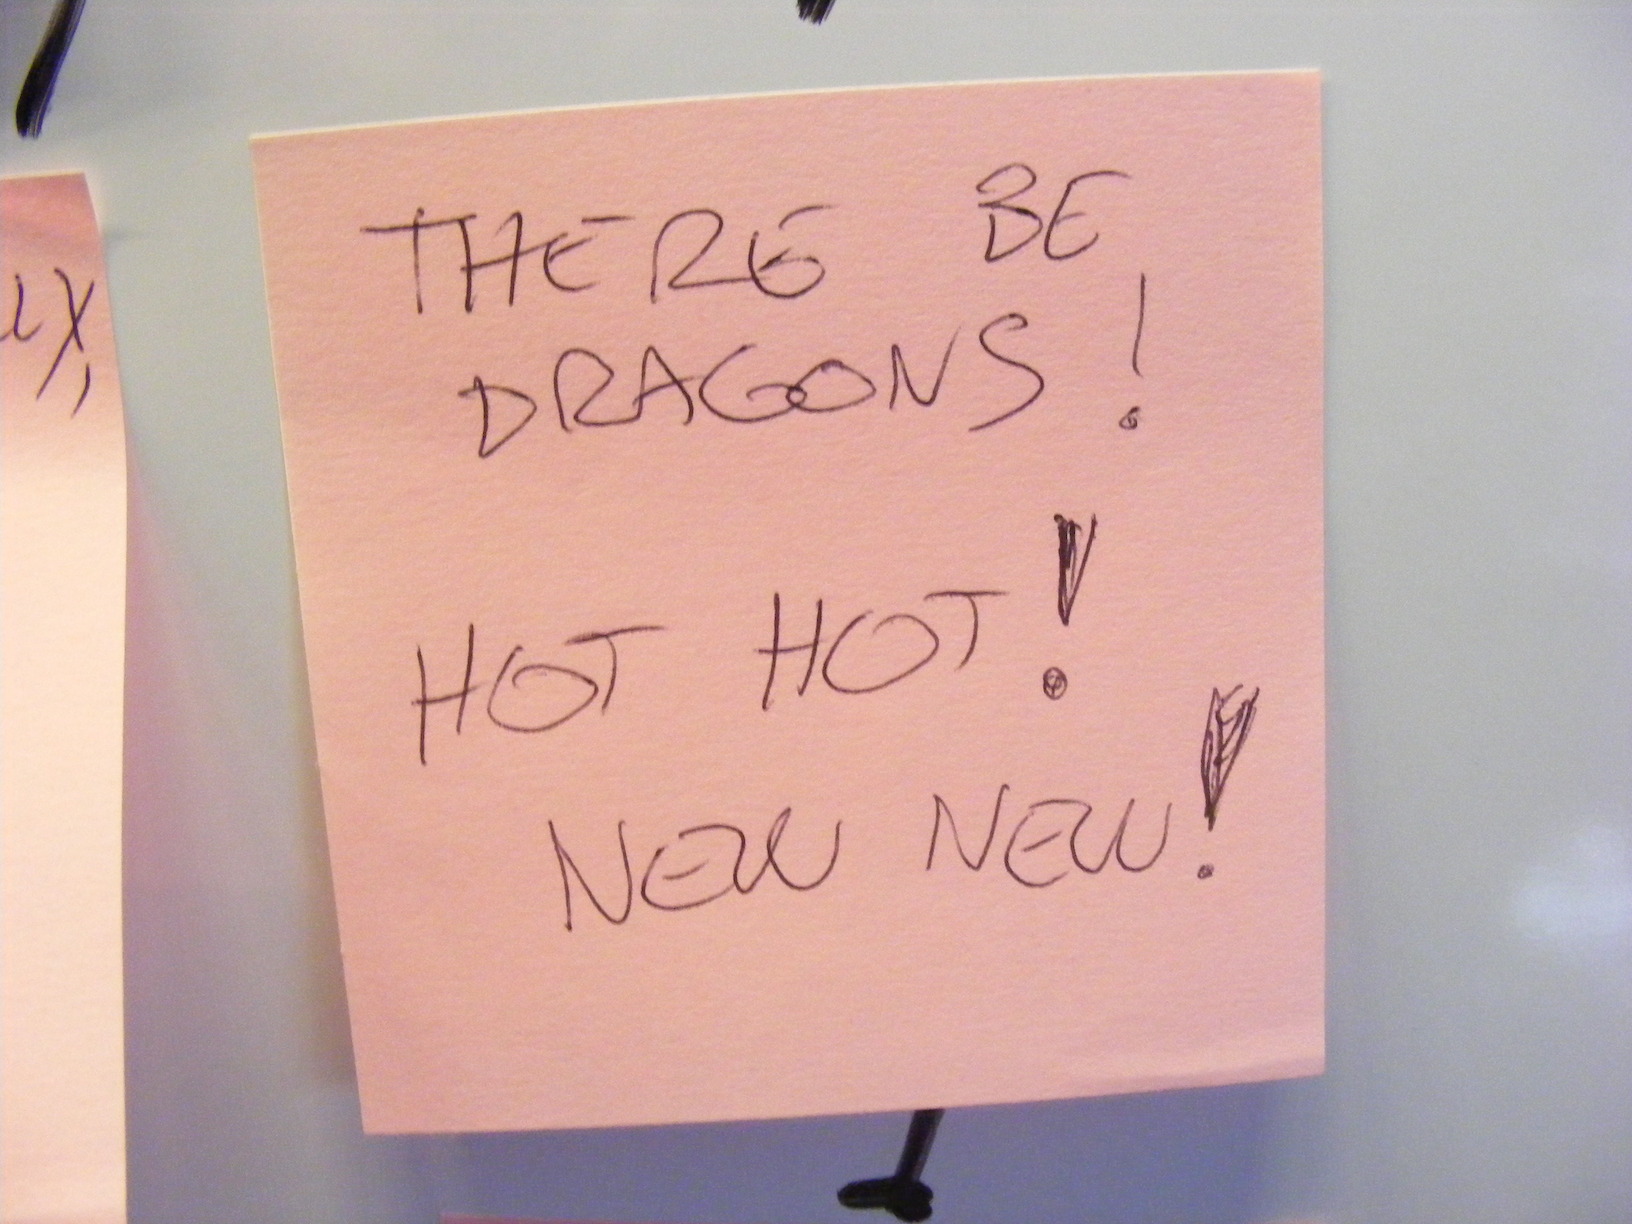 THERE BE
DRAGONS!
HOT HOT!
NEW NEW!